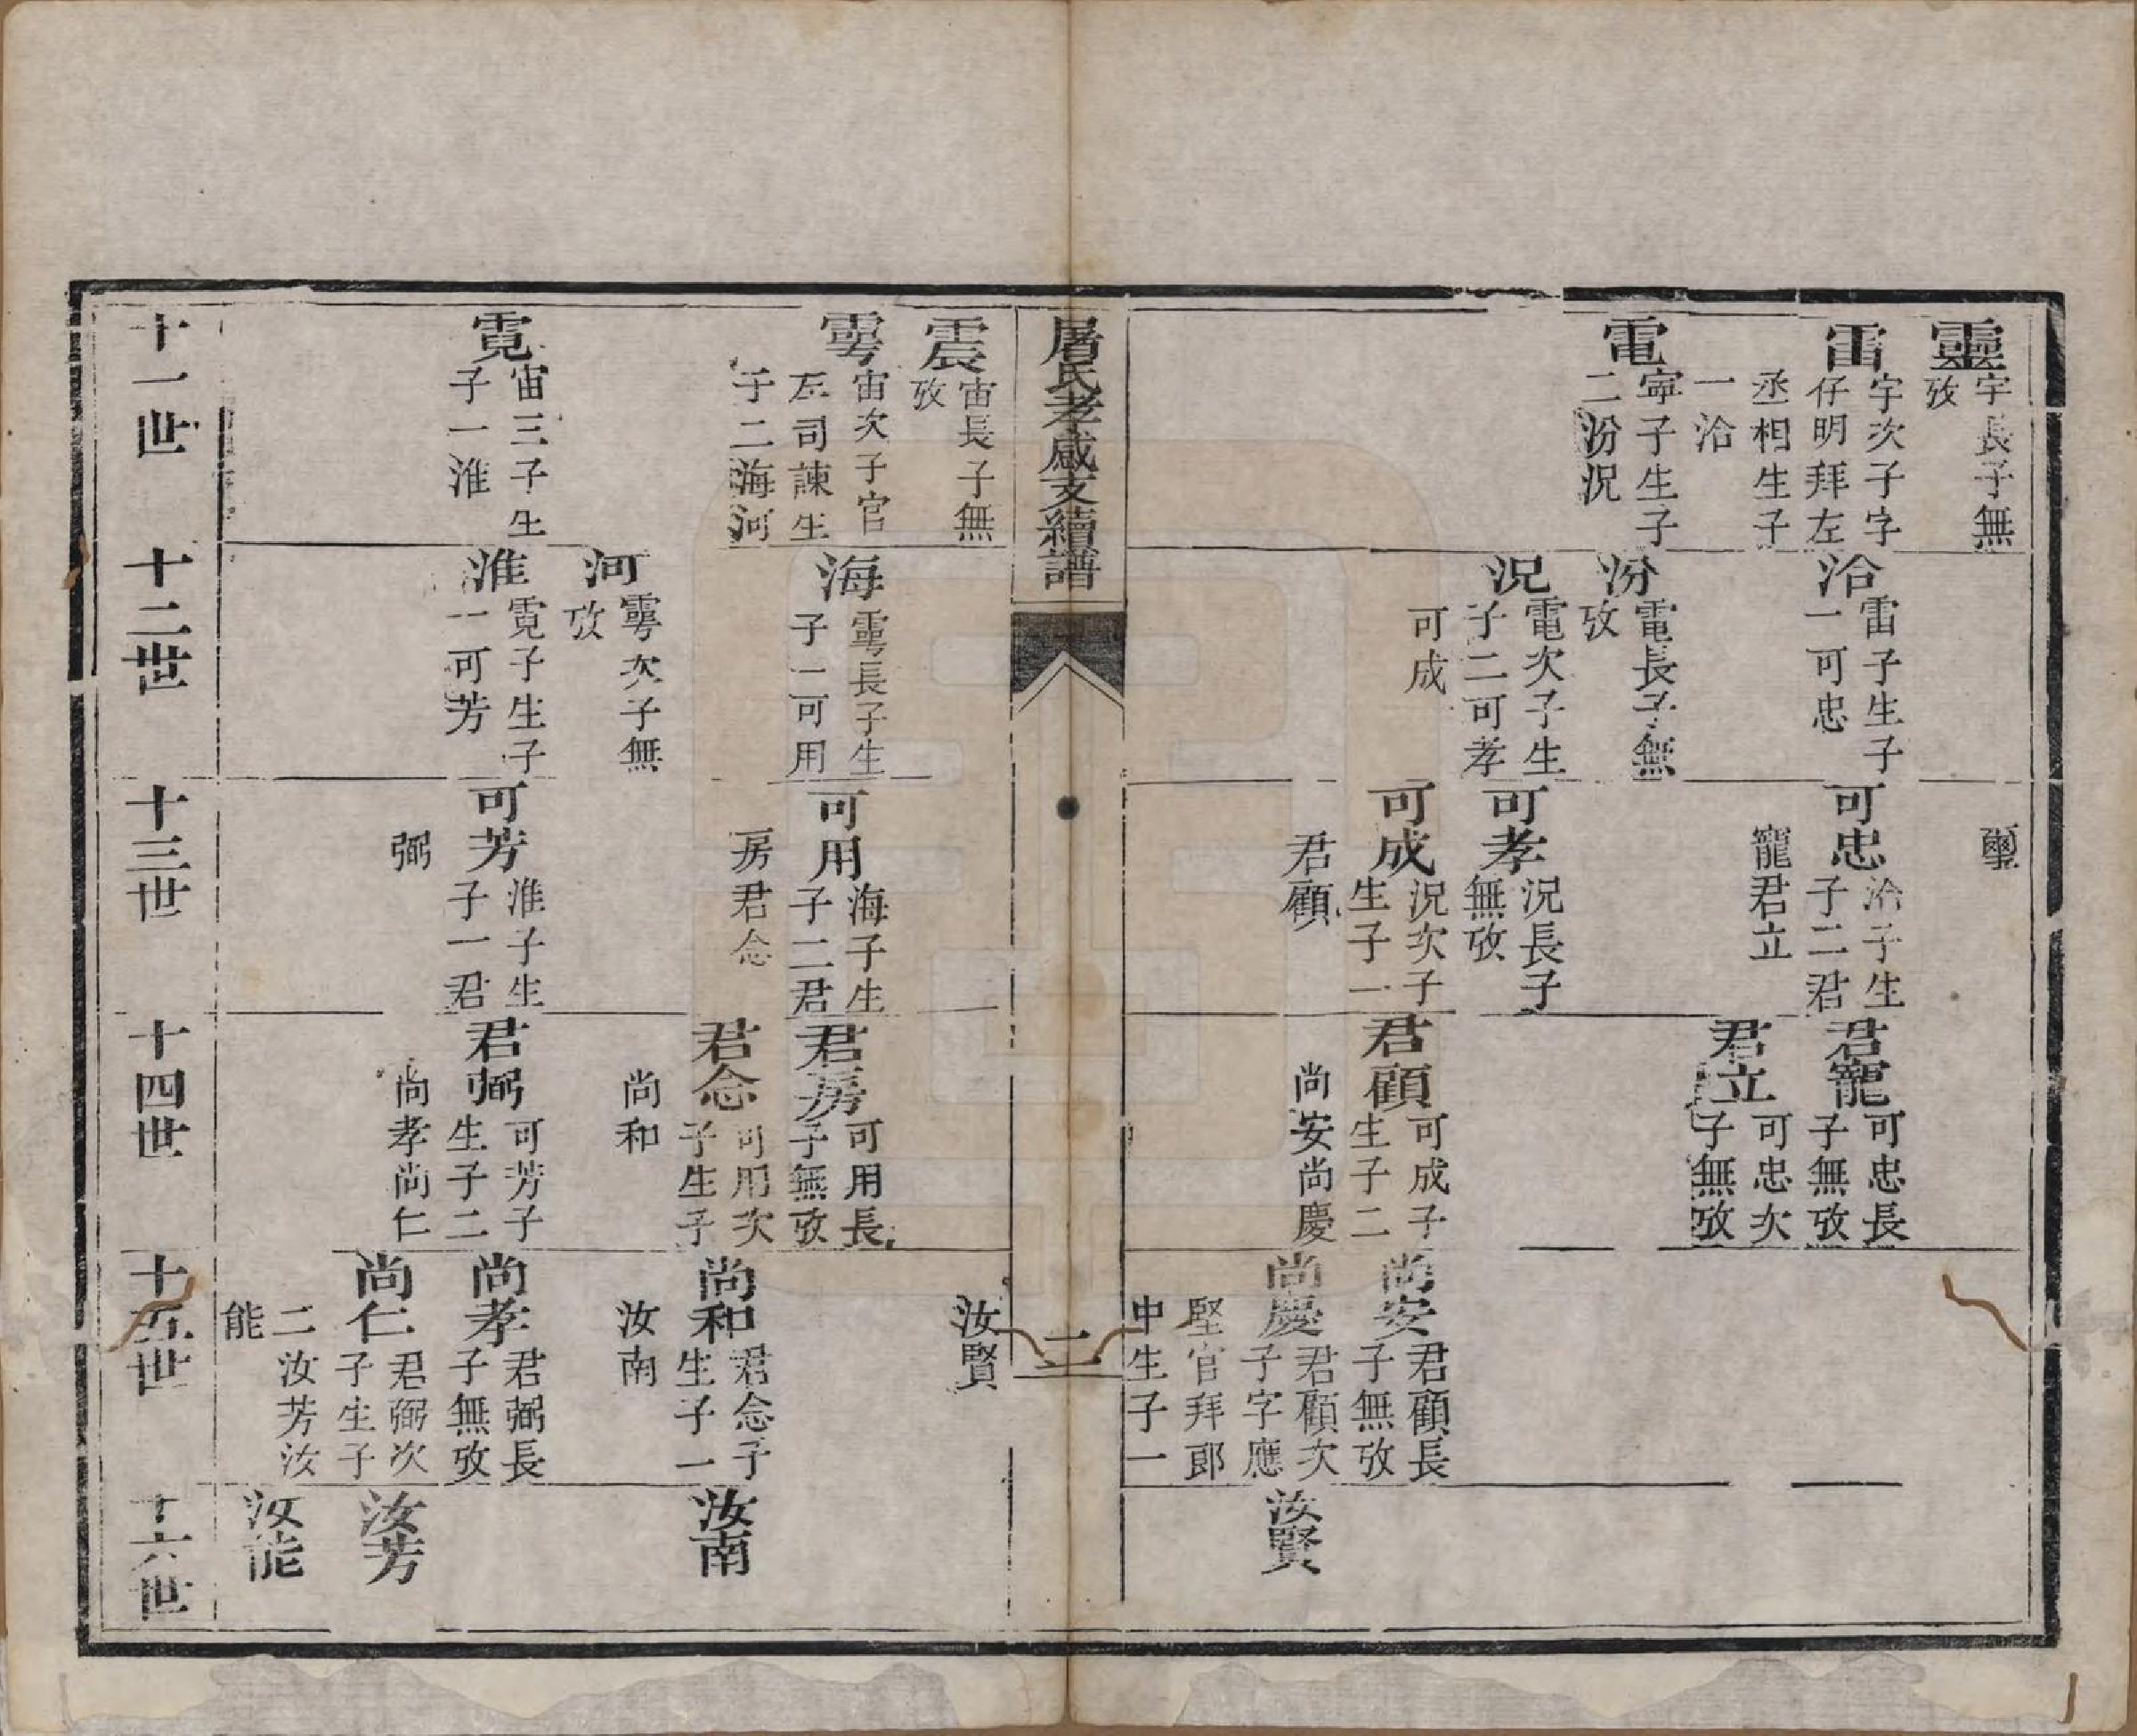 靈
宇長子無
攷
雷
宇次子字
仔明拜左
丞相生子
一洽
電
寧子生子
二汾況
洽
雷子生子
一可忠
汾
電長子無
攷
況
電次子生
子二可孝
可成
璽
可忠
洽子生
子二君
寵君立
可孝
況長子
無攷
可成
況次子
生子一
君顧
君寵
可忠長
子無攷
君立
可忠次
子無攷
君顧
可成子
生子二
尚安尚慶
尚安
君顧長
子無攷
尚慶
君顧次
子字應
堅官拜郎
中生子一
汝賢
屠氏孝感支續譜
二
震
宙長子無
攷
雩
宙次子官
左司諫生
子二海河
霓
宙三子生
子一淮
十一世
海
雩長子生
子一可用
河
雩次子無
攷
淮
霓子生子
一可芳
十二世
可用
海子生
子二君
房君念
可芳
淮子生
子一君
弼
十三世
君房
可用長
子無攷
君念
可用次
子生子
尚和
君弼
可芳子
生子二
尚孝尚仁
十四世
汝賢
尚和
君念子
生子一
汝南
尚孝
君弼長
子無攷
尚仁
君弼次
子生子
二汝芳汝
能
十五世
汝南
汝芳
汝能
十六世